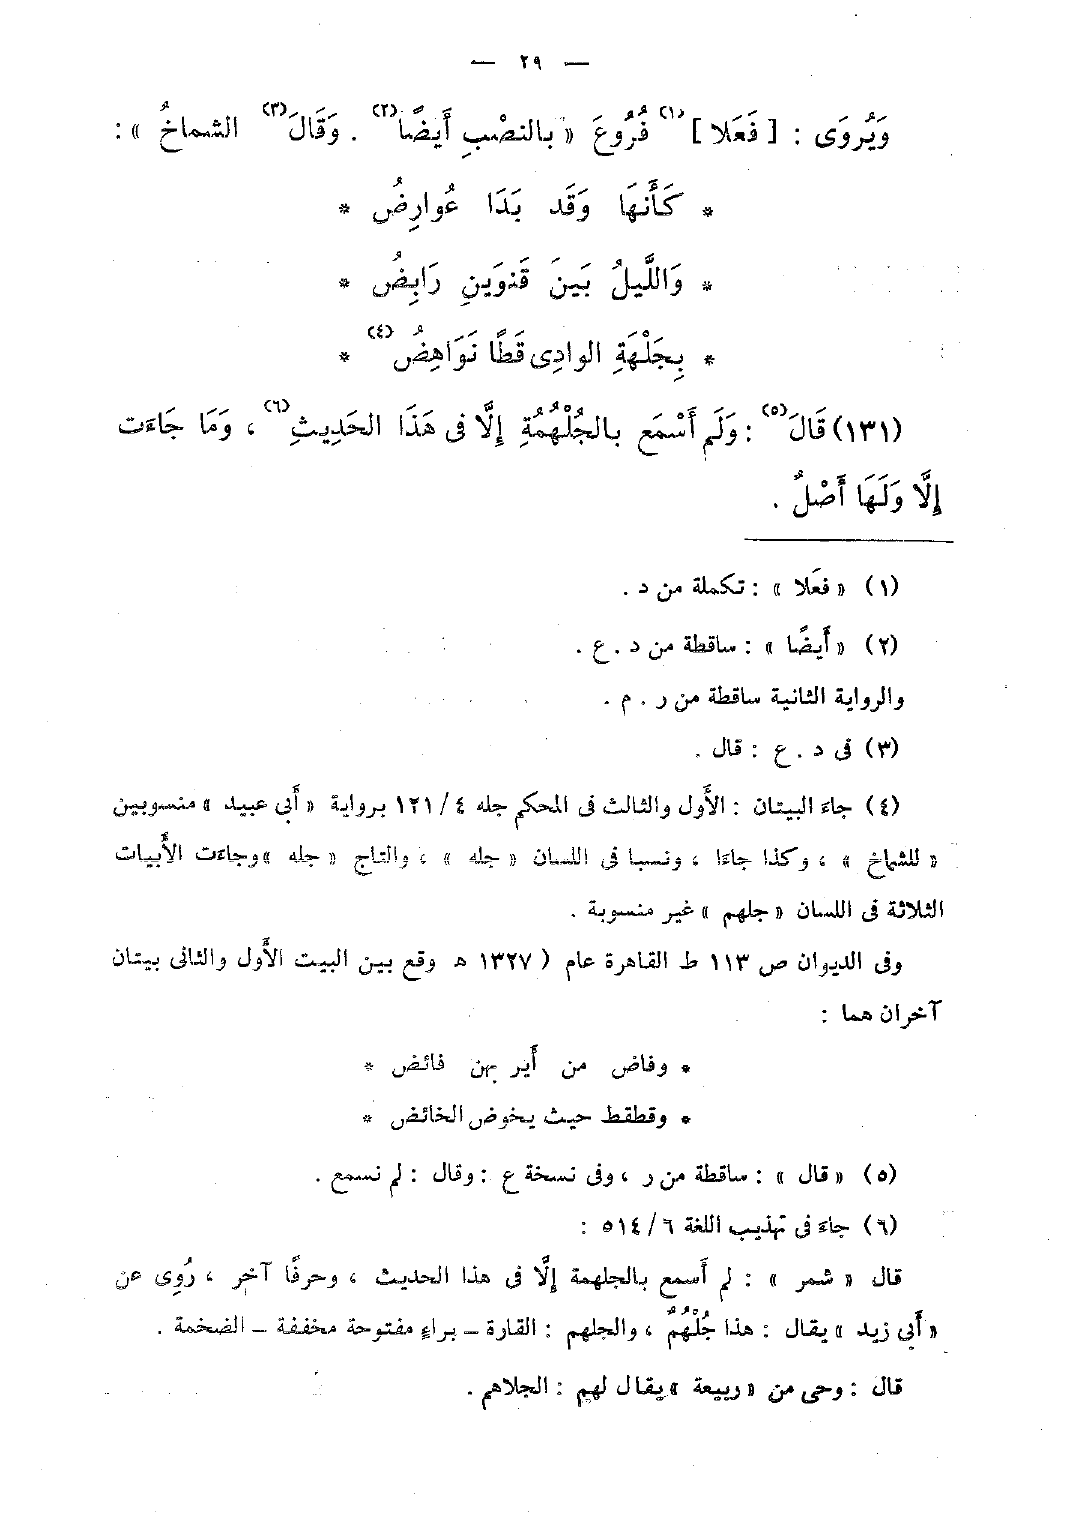 — ٢٩ —
وَيُروَى : [ فَعَلا ](١) فُرُوعَ « بالنصْبِ أَيضًا(٢) . وَقَالَ(٣) الشماخُ » :
* كَأَنهَا وَقَد بَدَا عُوارِضُ *
* وَاللَّيلُ بَينَ قَنوَينِ رَابِضُ *
* بِجَلْهَةِ الوادِى قَطًا نَوَاهِضُ(٤) *
(١٣١) قَالَ(٥) : وَلَم أَسْمَع بالجُلْهُمُةِ إلَّا فى هَذَا الحَدِيثِ(٦) ، وَمَا جَاءَت
إِلَّا وَلَهَا أَصْلٌ .
(١) « فَعَلا » : تكملة من د .
(٢) « أَيضًا » : ساقطة من د . ع .
والرواية الثانية ساقطة من ر . م .
(٣) فى د . ع : قال .
(٤) جاءَ البيتان : الأَول والثالث فى المحكم جله ٤ / ١٢١ برواية « أَبى عبيد » منسوبين
« للشماخ » ، وكذا جاءَا ، ونسبا فى اللسان « جله » ، والتاج « جله » وجاءَت الأَبيات
الثلاثة فى اللسان « جلهم » غير منسوبة .
وفى الديوان ص ١١٣ ط القاهرة عام ( ١٣٢٧ ه وقع بين البيت الأَول والثانى بيتان
آخران هما :
* وفاض من أَير بهن فائض *
* وقطقط حيث يخوض الخائض *
(٥) « قال » : ساقطة من ر ، وفى نسخة ع : وقال : لم نسمع .
(٦) جاءَ فى تهذيب اللغة ٦ / ٥١٤ :
قال « شمر » : لم أَسمع بالجلهمة إلَّا فى هذا الحديث ، وحرفًا آخر ، رُوِى عن
« أَبى زيد » يقال : هذا جُلْهُمٌ ، والجلهم : القارة – براءٍ مفتوحة مخففة – الضخمة .
قال : وحى من « ربيعة » يقال لهم : الجلاهم .